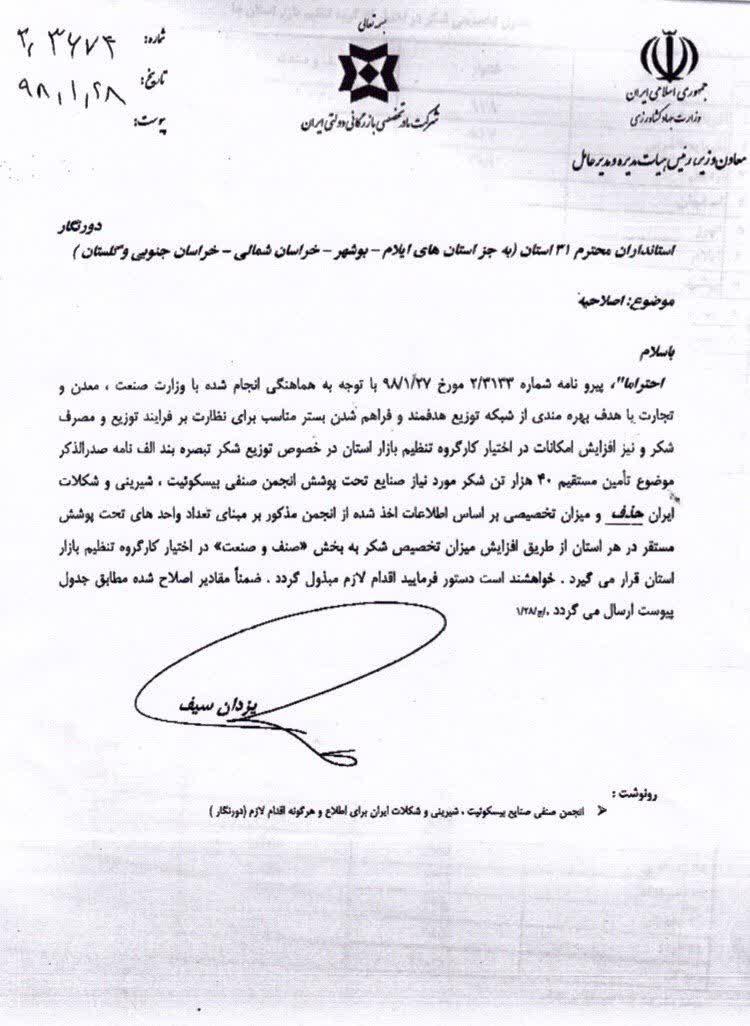 بسمه تعالی
جمهوری اسلامی ایران
وزارت جهاد کشاورزی
معاون وزیر، رئیس هیات مدیره و مدیرعامل
شرکت مادرتخصصی بازرگانی دولتی ایران
شماره: ۲٫۳۶۷۴
تاریخ: ۹۸٫۱٫۲۸
پیوست:
دورنگار
استانداران محترم ۳۱ استان (به جز استان های ایلام – بوشهر – خراسان شمالی – خراسان جنوبی و گلستان )
موضوع: اصلاحیه
باسلام
احتراما"، پیرو نامه شماره ۲/۳۱۳۳ مورخ ۹۸/۱/۲۷ با توجه به هماهنگی انجام شده با وزارت صنعت ، معدن و
تجارت با هدف بهره مندی از شبکه توزیع هدفمند و فراهم شدن بستر مناسب برای نظارت بر فرایند توزیع و مصرف
شکر و نیز افزایش امکانات در اختیار کارگروه تنظیم بازار استان در خصوص توزیع شکر تبصره بند الف نامه صدرالذکر
موضوع تأمین مستقیم ۴۰ هزار تن شکر مورد نیاز صنایع تحت پوشش انجمن صنفی بیسکوئیت ، شیرینی و شکلات
ایران حذف و میزان تخصیصی بر اساس اطلاعات اخذ شده از انجمن مذکور بر مبنای تعداد واحد های تحت پوشش
مستقر در هر استان از طریق افزایش میزان تخصیص شکر به بخش «صنف و صنعت» در اختیار کارگروه تنظیم بازار
استان قرار می گیرد . خواهشند است دستور فرمایید اقدام لازم مبذول گردد . ضمناً مقادیر اصلاح شده مطابق جدول
پیوست ارسال می گردد ./ج/۱/۲۸
یزدان سیف
رونوشت :
انجمن صنفی صنایع بیسکوئیت ، شیرینی و شکلات ایران برای اطلاع و هرگونه اقدام لازم (دورنگار )